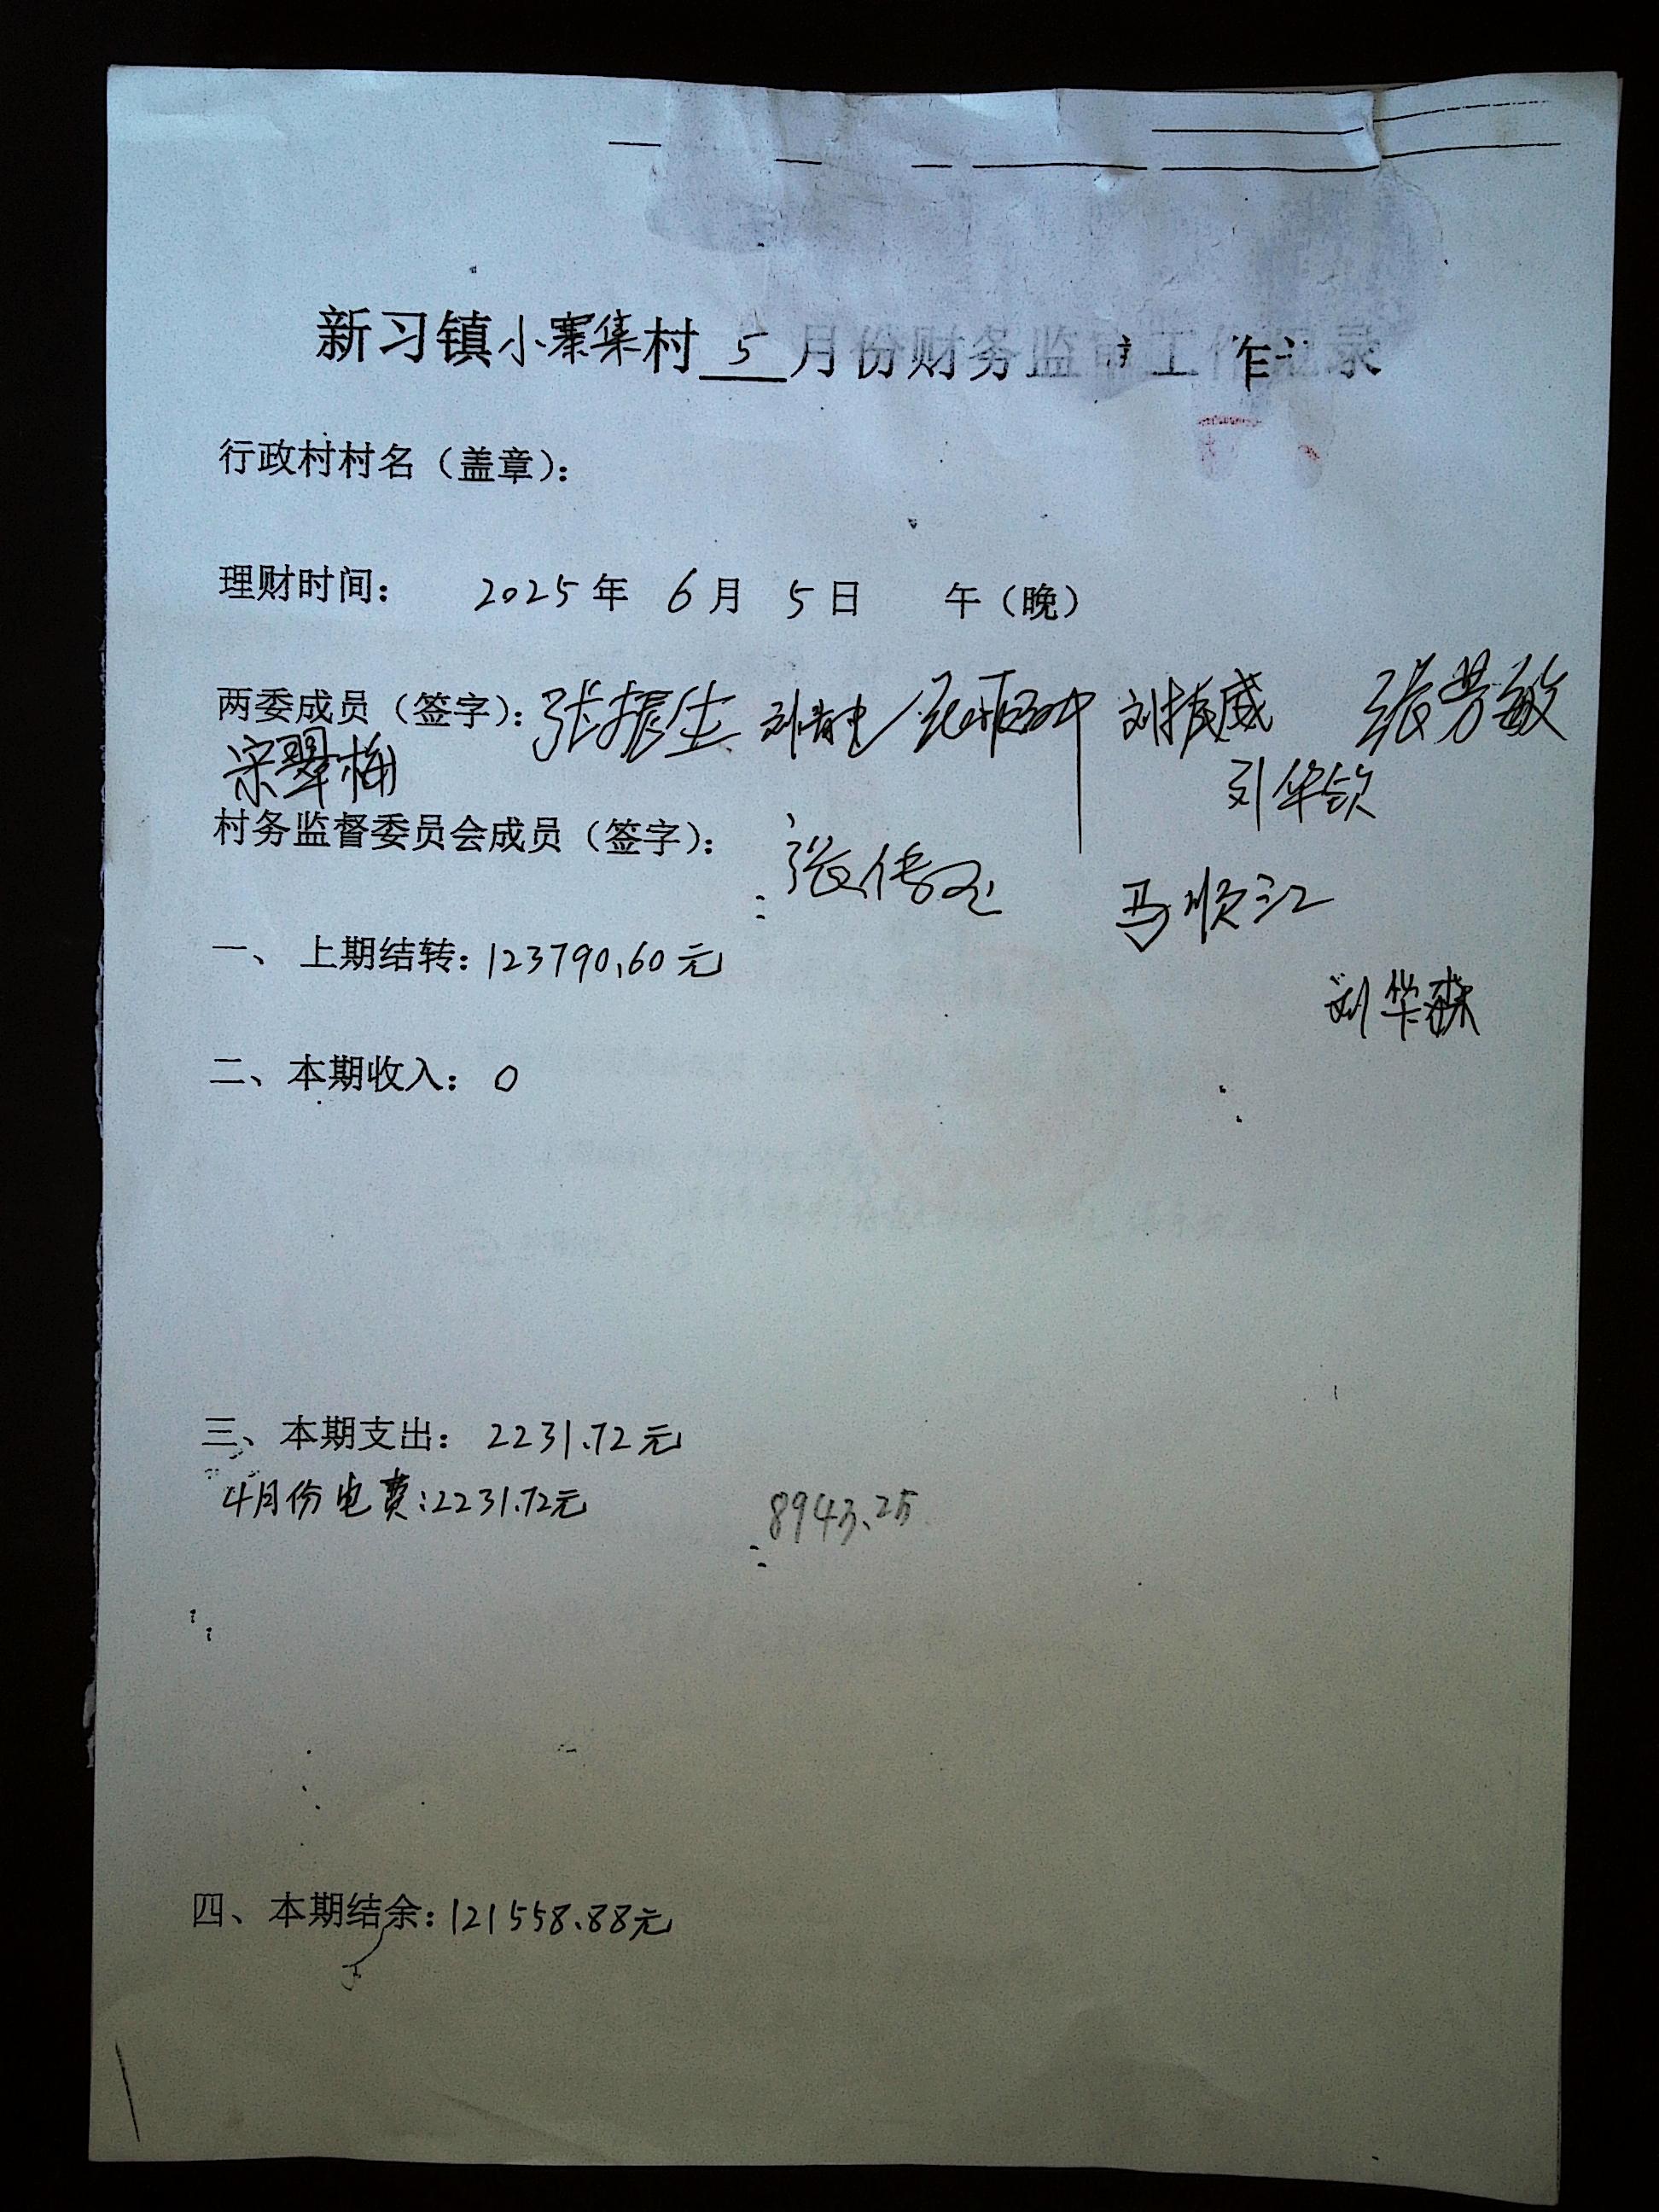 新习镇小寨集村 5 月份财务监审工作记录
行政村村名（盖章）：
理财时间： 2025年 6月 5日 午（晚）
两委成员（签字）：张振生 刘振威 张芳敏
宋翠梅 刘华钦
村务监督委员会成员（签字）：
马顺江
一、 上期结转：123790.60元
刘华森
二、本期收入：0
三、本期支出：2231.72元
4月份电费：2231.72元 8943.25
四、本期结余：121558.88元